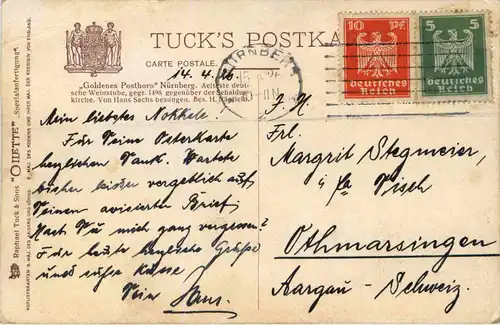 TUCK'S POSTKA
CARTE POSTALE.
14. 4. 26.
NÜRNBERG
„Goldenes Posthorn" Nürnberg. Aelteste deut-
sche Weinstube, gegr. 1498 gegenüber der Sebaldus-
kirche. Von Hans Sachs besungen. Bes. H.
10 Pf.
Deutsches
Reich
5 5
Deutsches
Reich
Mein liebstes Nokkele!
Für Deine Osterkarte
herzlichen Dank. Wartete
bisher leider vergeblich auf
Deinen avisierten Brief.
Hast Du mich ganz vergessen?
Für heute herzliche Grüsse
und süsse Küsse
Dein Hans.
Frl.
Margrit Stegmeier,
i/Fa Fisch
Othmarsingen
Aargau - Schweiz.
Raphael Tuck & Sons "OILETTE" „Spezialanfertigung".